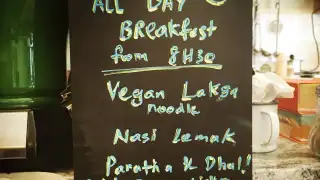 ALL DAY
BREAKFAST
from 8H30
Vegan Laksa
noodle
Nasi Lemak
Paratha & Dhal!